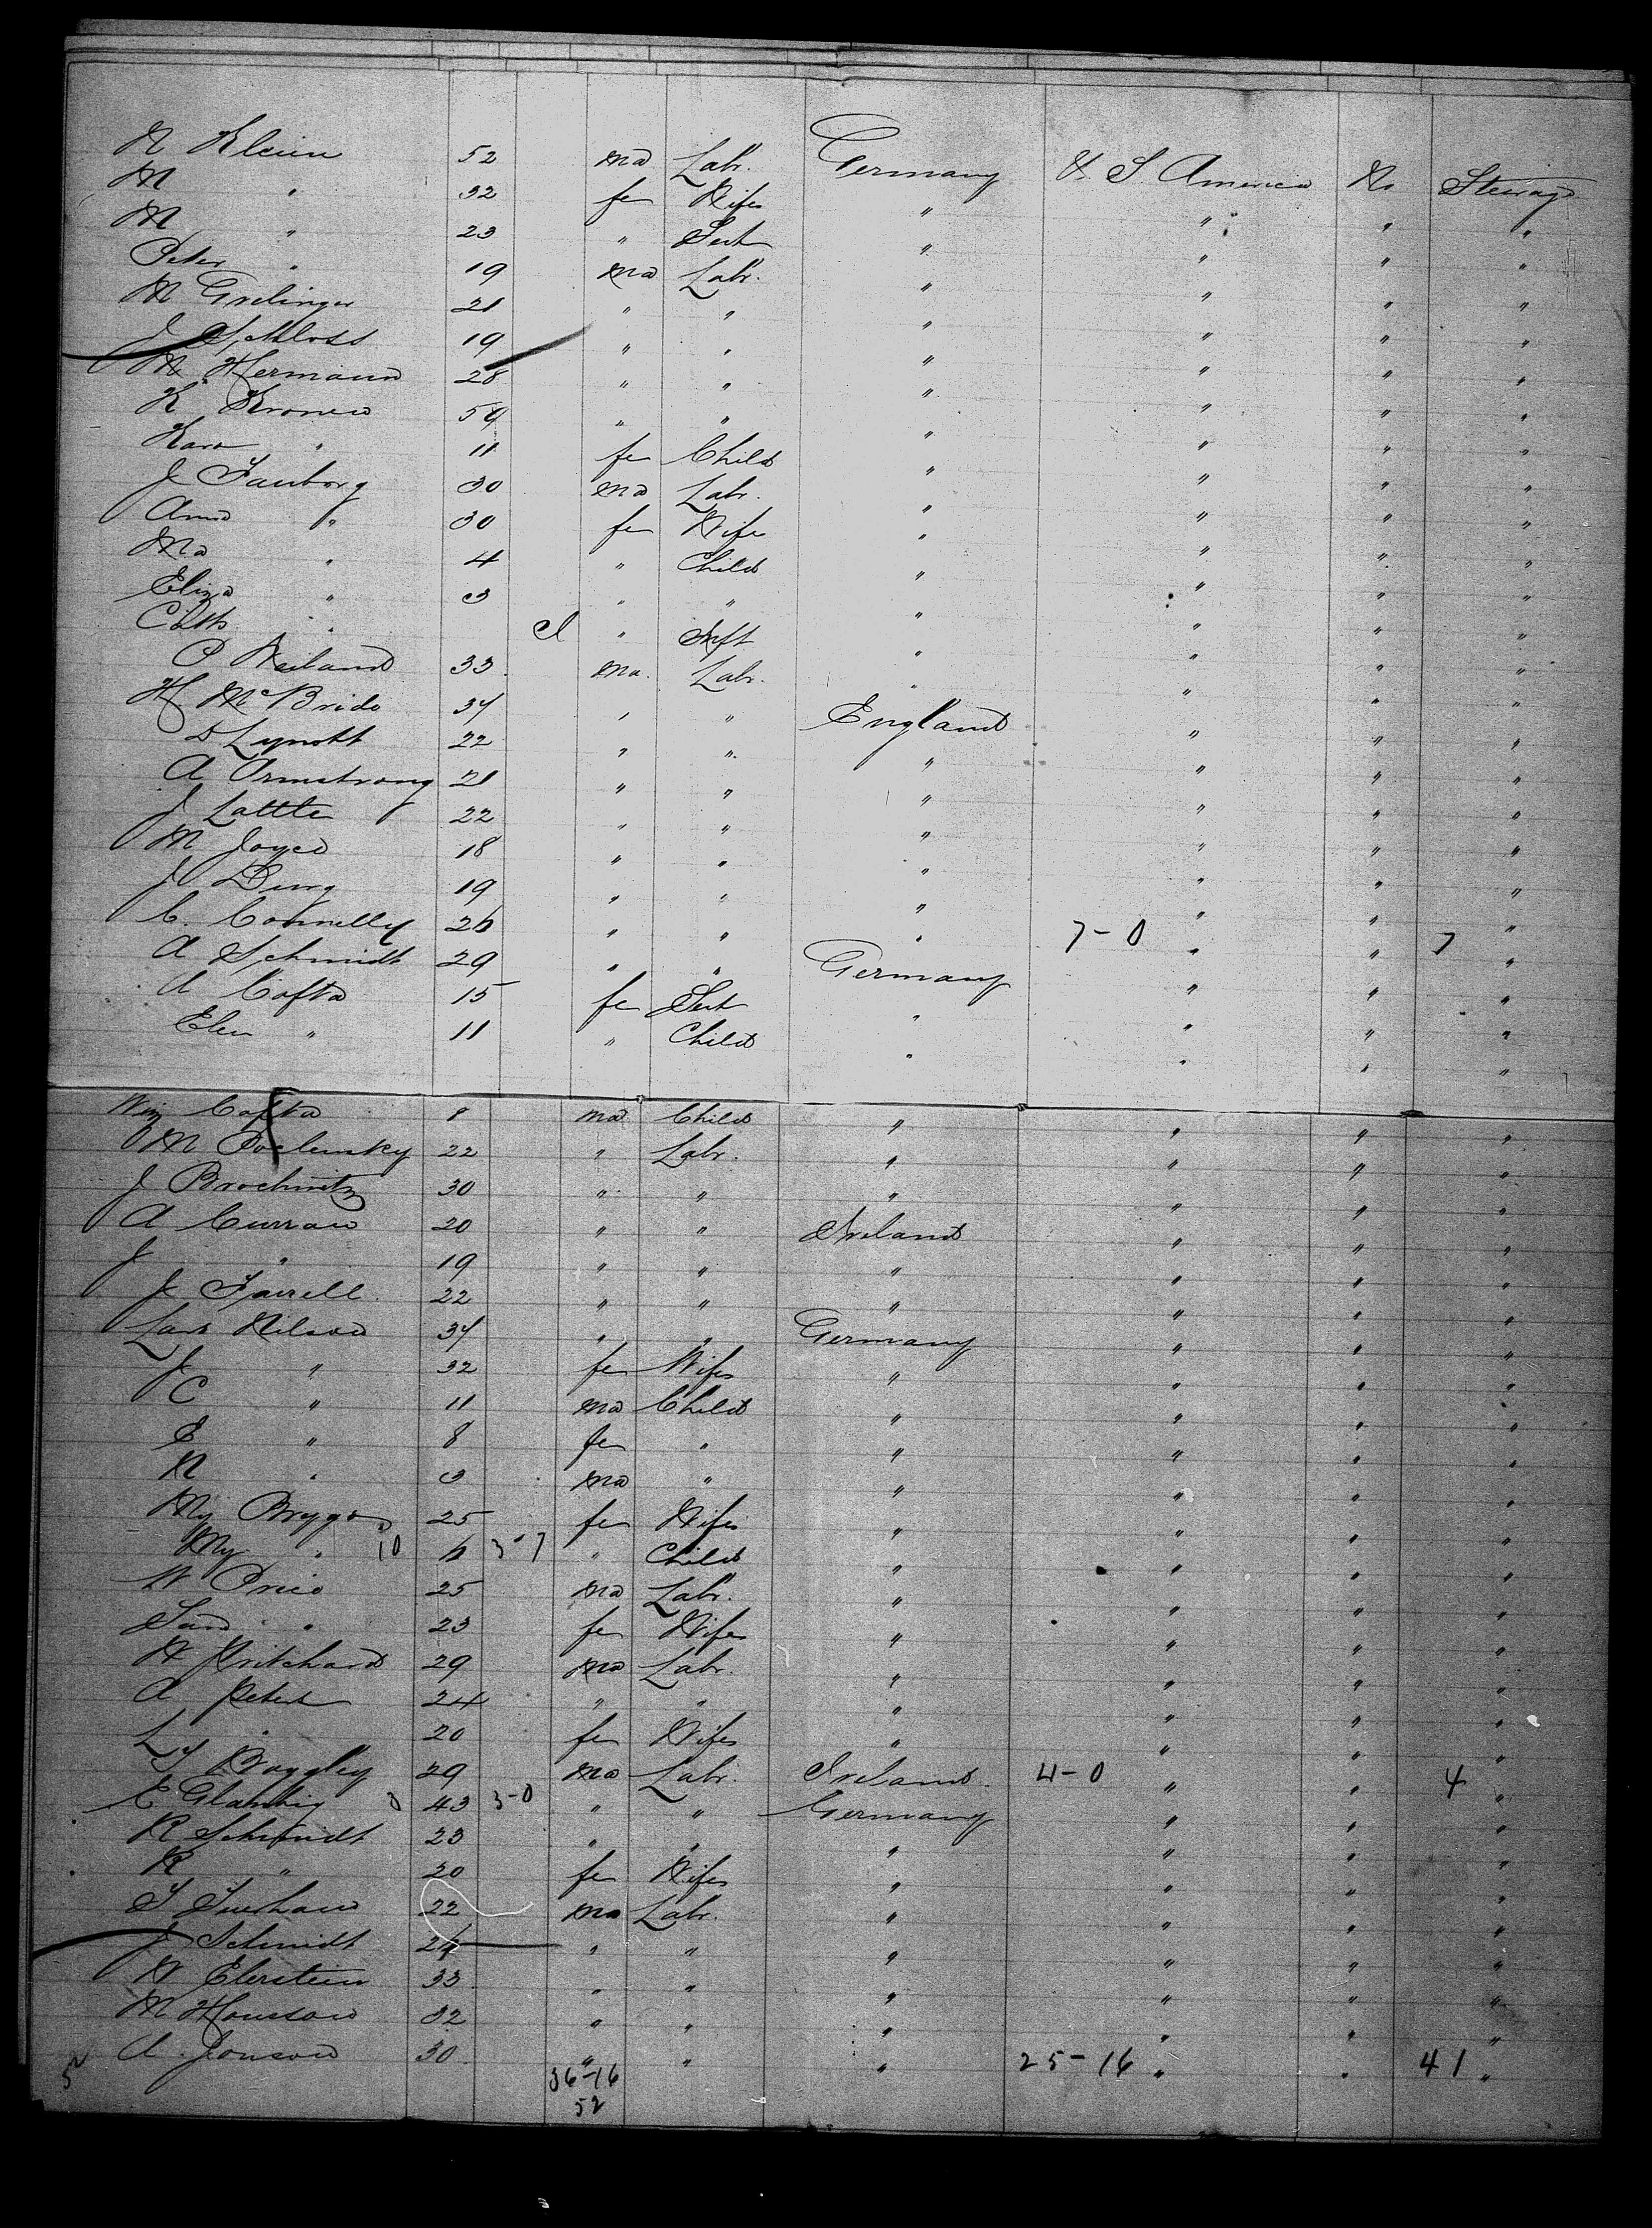 N Klein 52 ma Labr. Germany U. S America No Steerage
M " 32 fe Wife " " " "
M " 23 " Sert " " " "
Peter " 19 ma Labr. " " " "
M Grelinger 21 " " " " " "
J Schloss 19 " " " " " "
N Hermann 28 " " " " " "
K Kronew 59 " " " " " "
Kara " 11 fe Child " " " "
J Fauborg 30 ma Labr. " " " "
Anna " 30 fe Wife " " " "
Ma " 4 " Child " " " "
Eliza " 3 " " " " " "
Cath " " Inft " " " "
P Weiland 33 ma. Labr. " " " "
H McBride 34 " " England " " "
D Lynott 22 " " " " " "
A Armstrong 21 " " " " " "
J Lattte 22 " " " " " "
M Joyce 18 " " " " " "
J Berry 19 " " " " " "
C. Connelly 26 " " " 7-0 " " 7 "
A Schmidt 29 " " Germany " " "
A Cofta 15 fe Sert " " " "
Elen " 11 " Child " " " "
Wm Cofta 8 ma Child " " " "
M 22 " Labr. " " " "
J Brochnitz 30 " " " " " "
A Curran 20 " " Ireland " " "
J " 19 " " " " " "
J Farrell 22 " " " " " "
Lars Nilson 34 " " Germany " " "
J " 32 fe Wife " " " "
C " 11 ma Child " " " "
E " 8 fe " " " " "
N " 3 ma " " " " "
My Brygor 25 fe Wife " " " "
My " 10 6 3-7 " Child " " " "
W Price 25 ma Labr. " " " "
Sara " 23 fe Wife " " " "
W Pritchard 29 ma Labr. " " " "
A Peters 24 " " " " " "
L " 20 fe Wife " " " "
T Baggley 29 ma Labr. Ireland. 4-0 " " 4 "
E 3 43 3-0 " " Germany " " "
R Schmidt 23 " " " " " "
R " 20 fe Wife " " " "
22 ma Labr. " " " "
J Schmidt 24 " " " " " "
W Eberstein 33 " " " " " "
M 32 " " " " " "
A. Jonson 30 " " " 25-16 " " 41 "
52 36-16
52